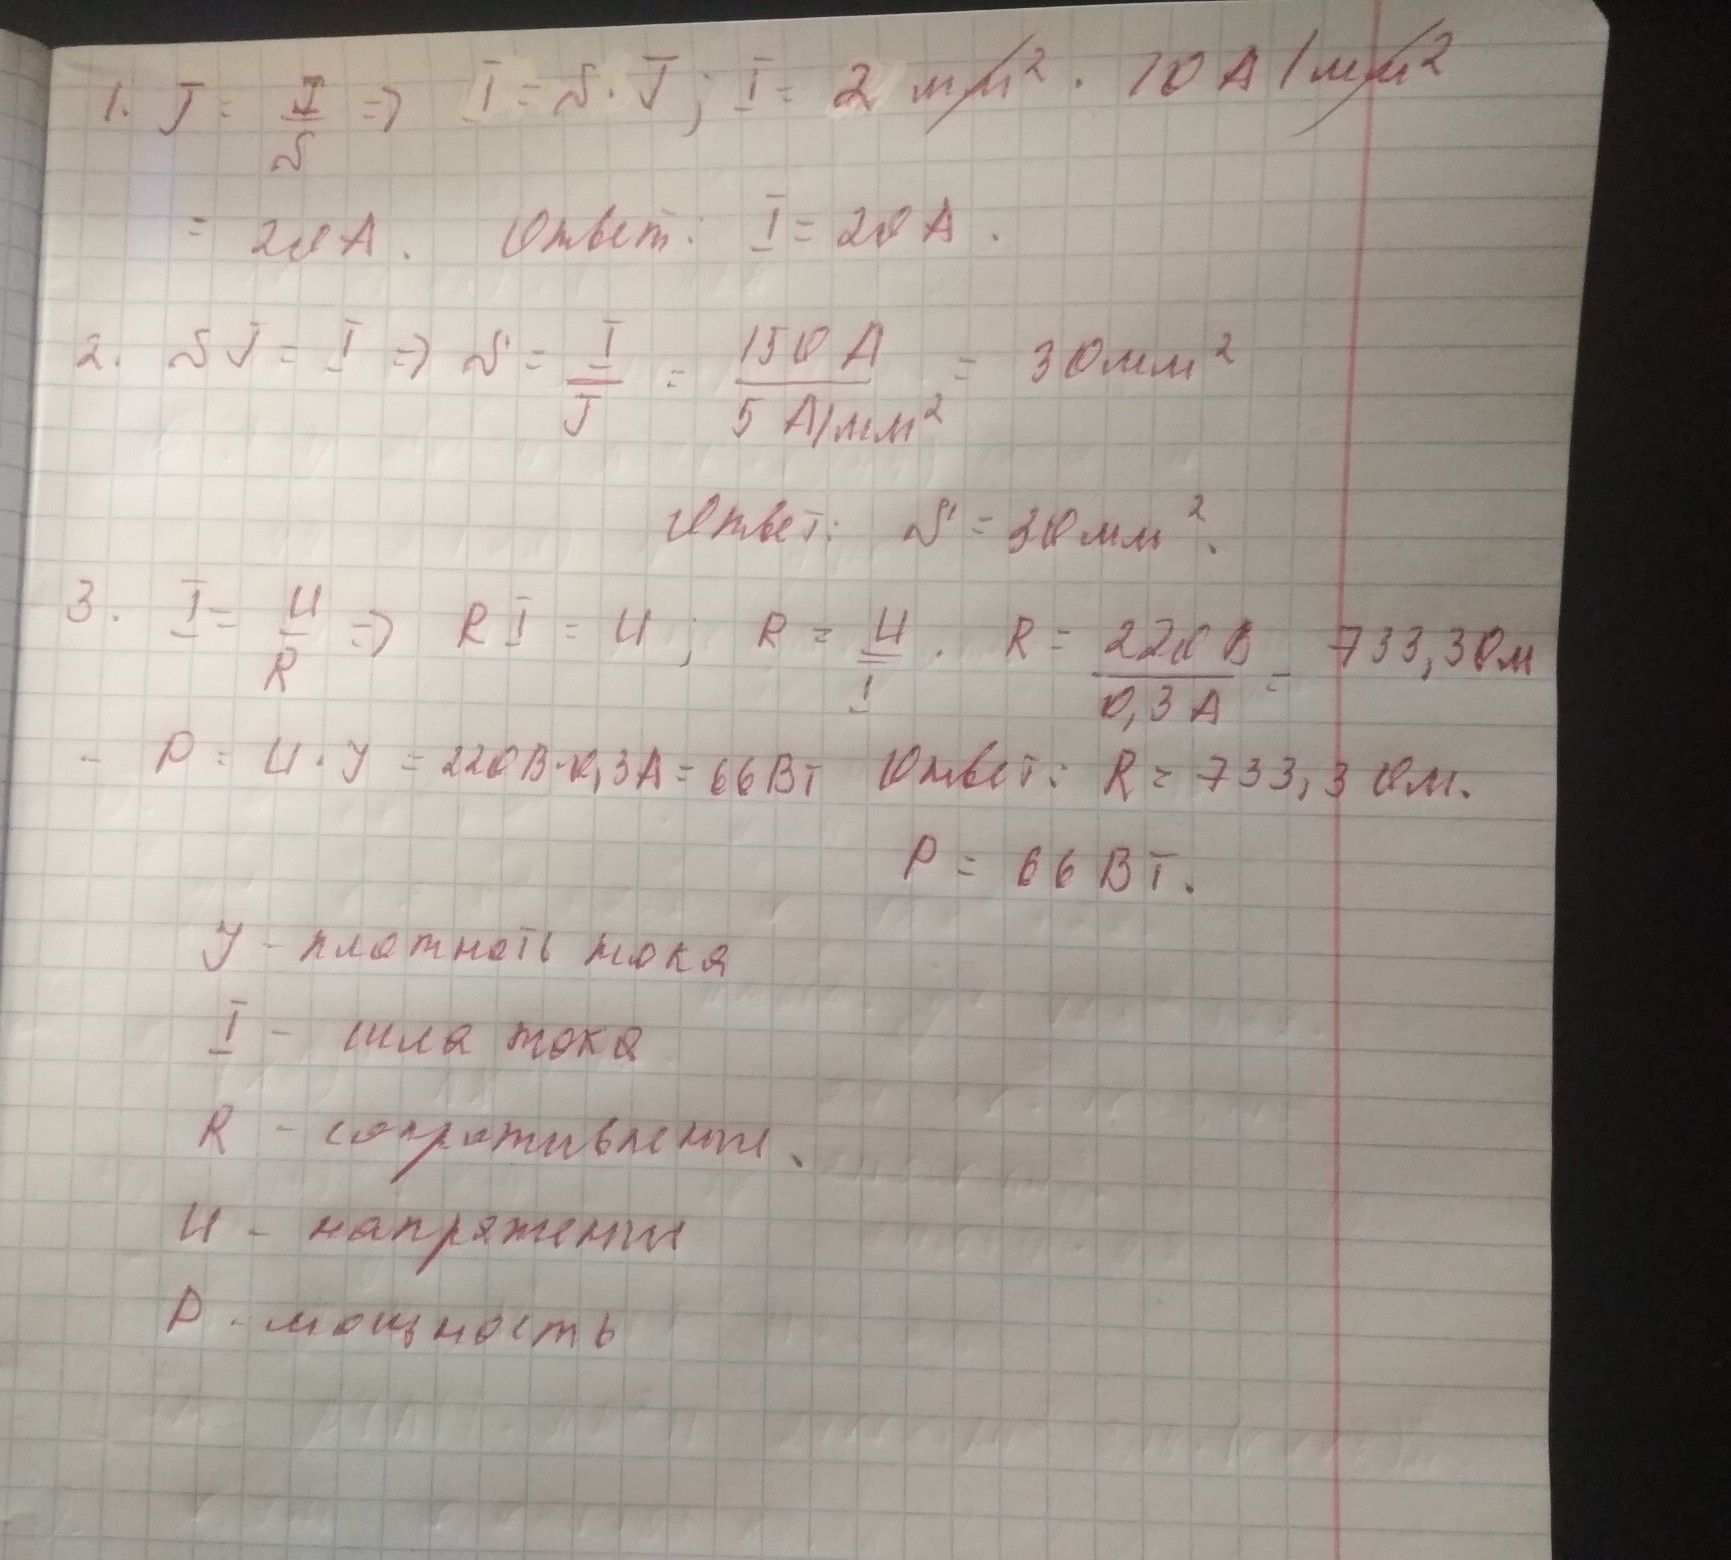 1. J = I/S => I = S · J; I = 2 мм² · 10 А/мм²
= 20 А. Ответ: I = 20 А.
2. SJ = I => S = I/J = 150 А / 5 А/мм² = 30 мм²
Ответ: S = 30 мм².
3. I = U/R => RI = U; R = U/I. R = 220 В / 0,3 А = 733,3 Ом
- P = U · У = 220 В · 0,3 А = 66 Вт Ответ: R = 733,3 Ом.
P = 66 Вт.
У - плотность тока
I - сила тока
R - сопротивление.
U - напряжение
P - мощность